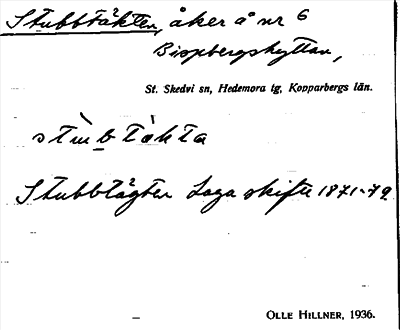 Stubbtäkten, åker å nr 6
Bispbergshyttan,
St. Skedvi sn, Hedemora tg, Kopparbergs län.
Stubbtägten Laga skifte 1871-79
OLLE HILLNER, 1936.